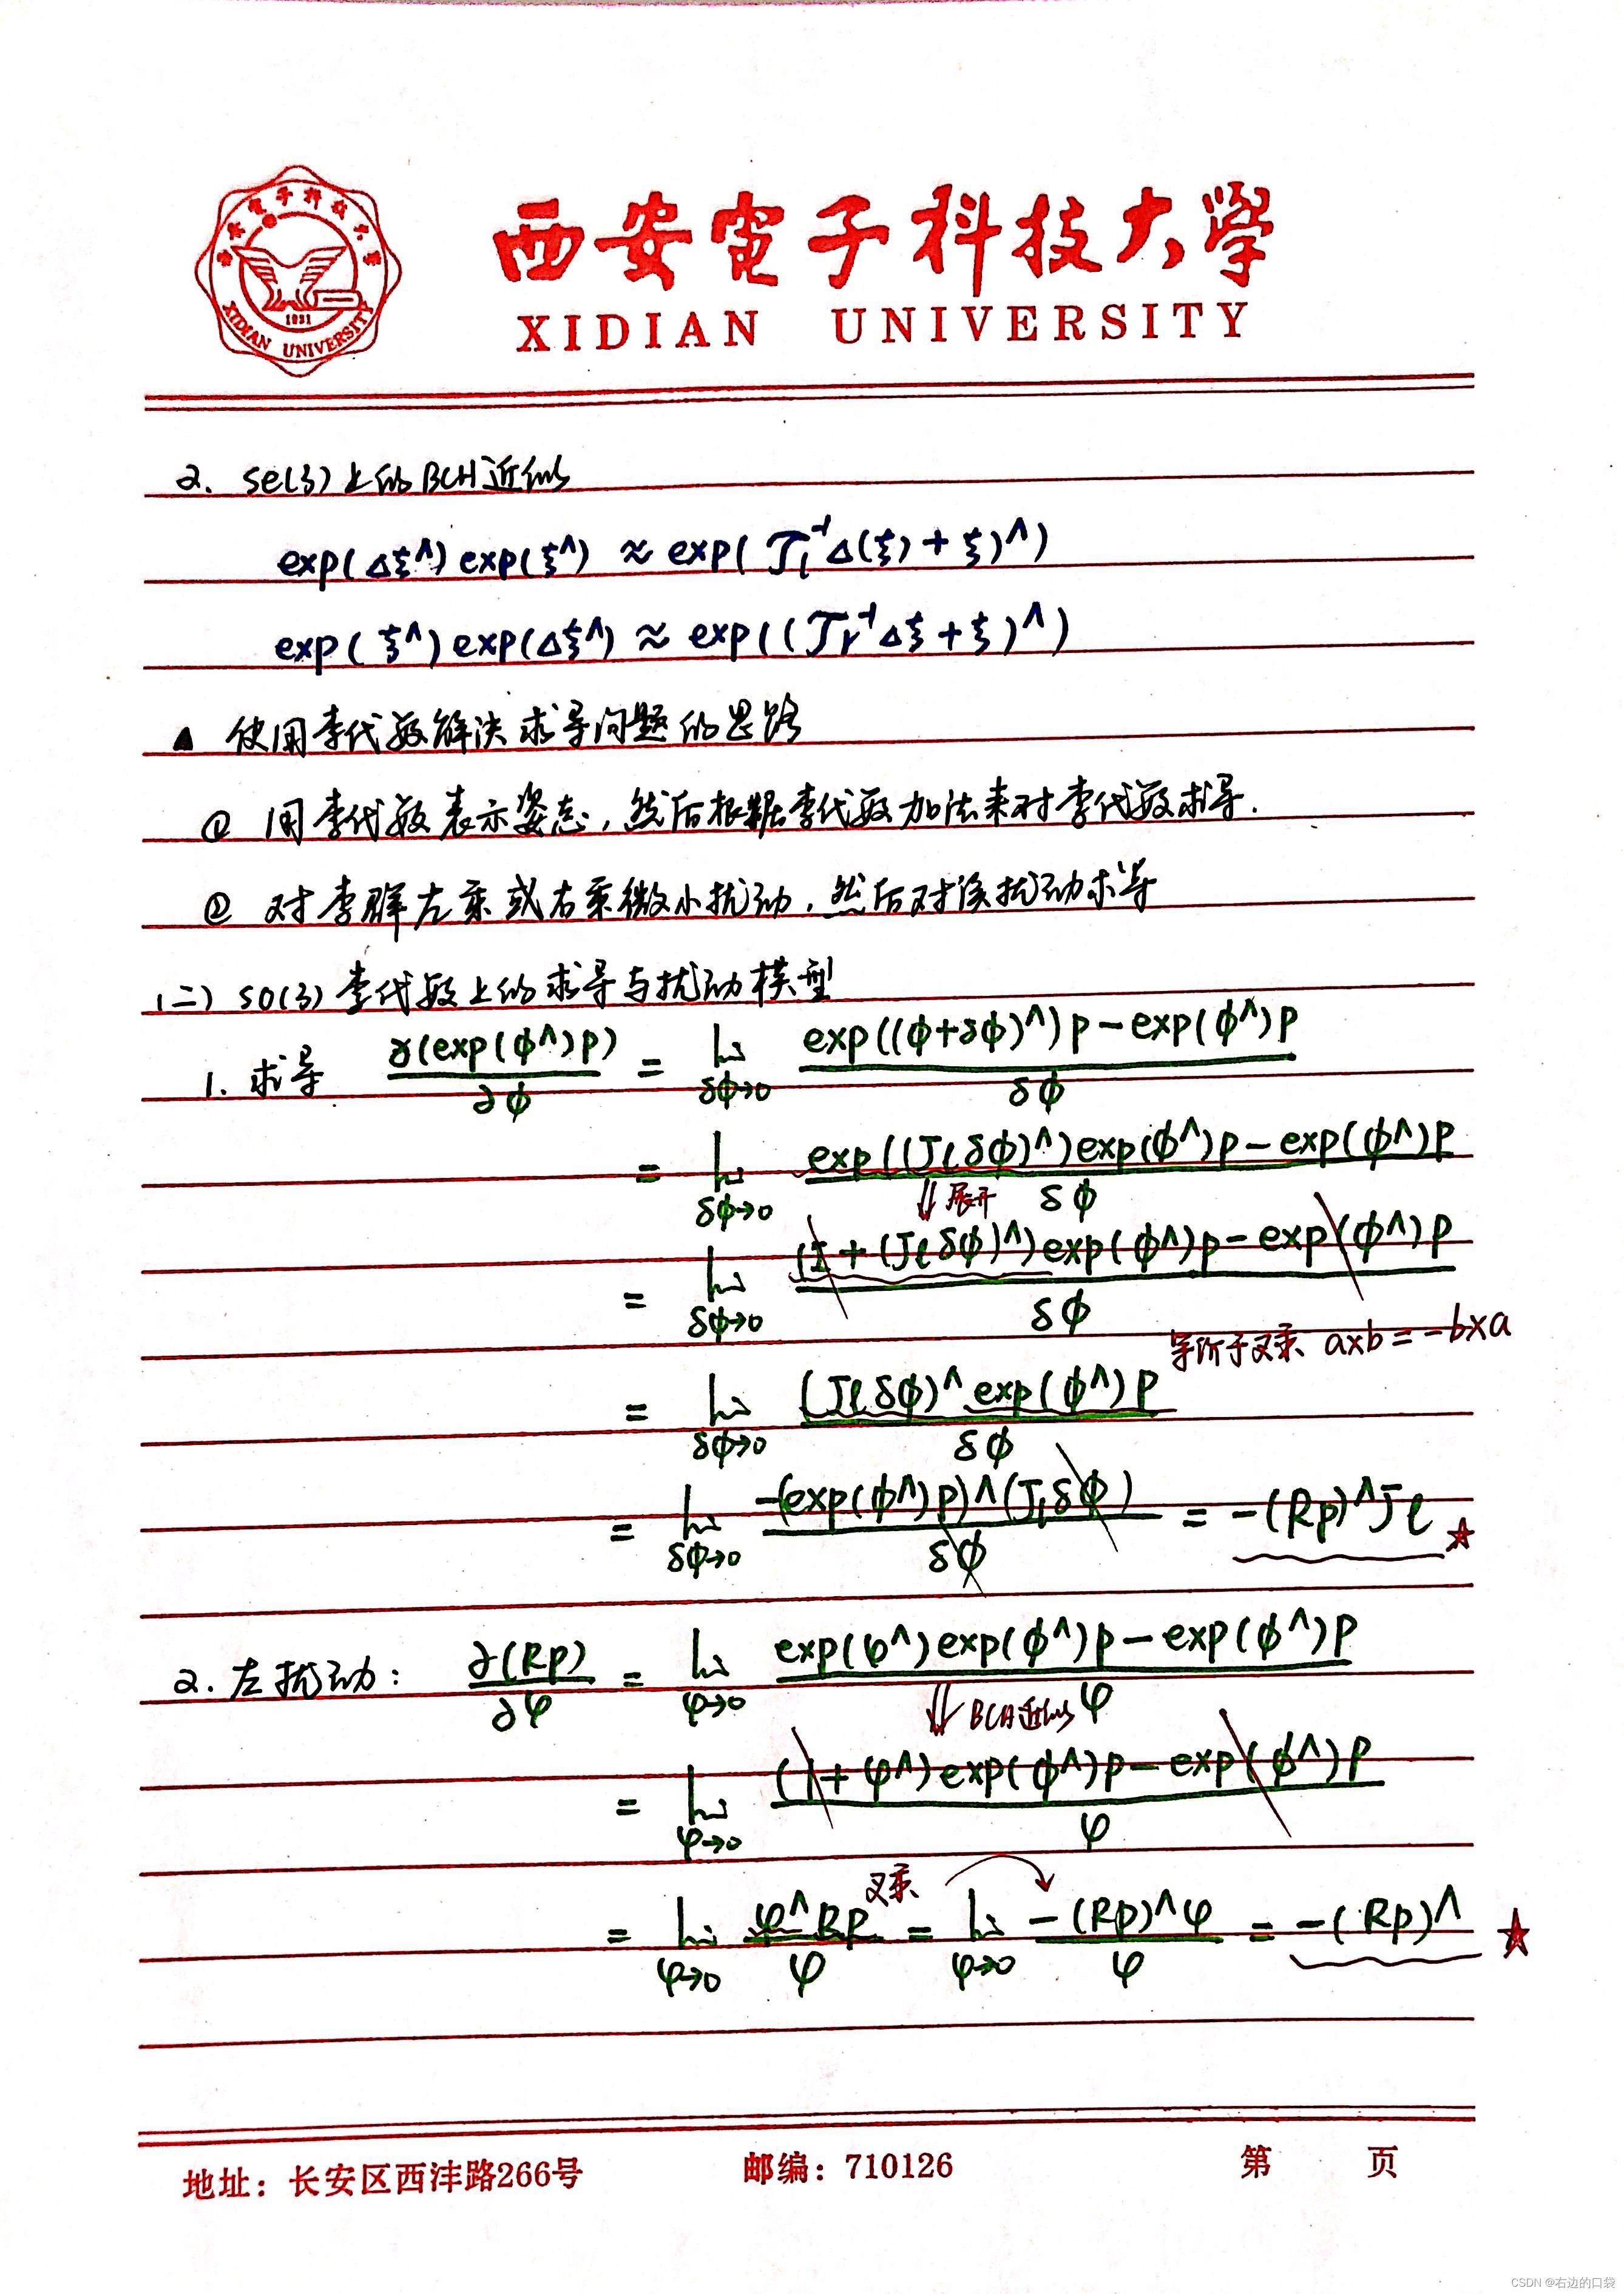 西安電子科技大學
XIDIAN UNIVERSITY
西安電子科技大學
1931
XIDIAN UNIVERSITY
2. se(3)上的BCH近似
exp(Δξ^)exp(ξ^) ≈ exp(𝒥l⁻¹Δ(ξ)+ξ)^)
exp(ξ^)exp(Δξ^) ≈ exp((𝒥r⁻¹Δξ+ξ)^)
▲ 使用李代数解决求导问题的思路
① 用李代数表示姿态,然后根据李代数加法来对李代数求导.
② 对李群左乘或右乘微小扰动,然后对该扰动求导
(二) so(3)李代数上的求导与扰动模型
1. 求导 ∂(exp(ϕ^)p)/∂ϕ = lim δϕ→0 exp((ϕ+δϕ)^)p-exp(ϕ^)p / δϕ
= lim δϕ→0 exp((Jlδϕ)^)exp(ϕ^)p-exp(ϕ^)p / δϕ
⇓展开
= lim δϕ→0 (I+(Jlδϕ)^)exp(ϕ^)p-exp(ϕ^)p / δϕ
等价于叉乘 a×b=-b×a
= lim δϕ→0 (Jlδϕ)^exp(ϕ^)p / δϕ
= lim δϕ→0 -(exp(ϕ^)p)^(Jlδϕ) / δϕ = -(Rp)^Jl ☆
2. 左扰动: ∂(Rp)/∂φ = lim φ→0 exp(φ^)exp(ϕ^)p-exp(ϕ^)p / φ
⇓BCH近似
= lim φ→0 (1+φ^)exp(ϕ^)p-exp(ϕ^)p / φ
叉乘
= lim φ→0 φ^Rp / φ = lim φ→0 -(Rp)^φ / φ = -(Rp)^ ★
地址：长安区西沣路266号 邮编：710126 第 页
CSDN @右边的口袋